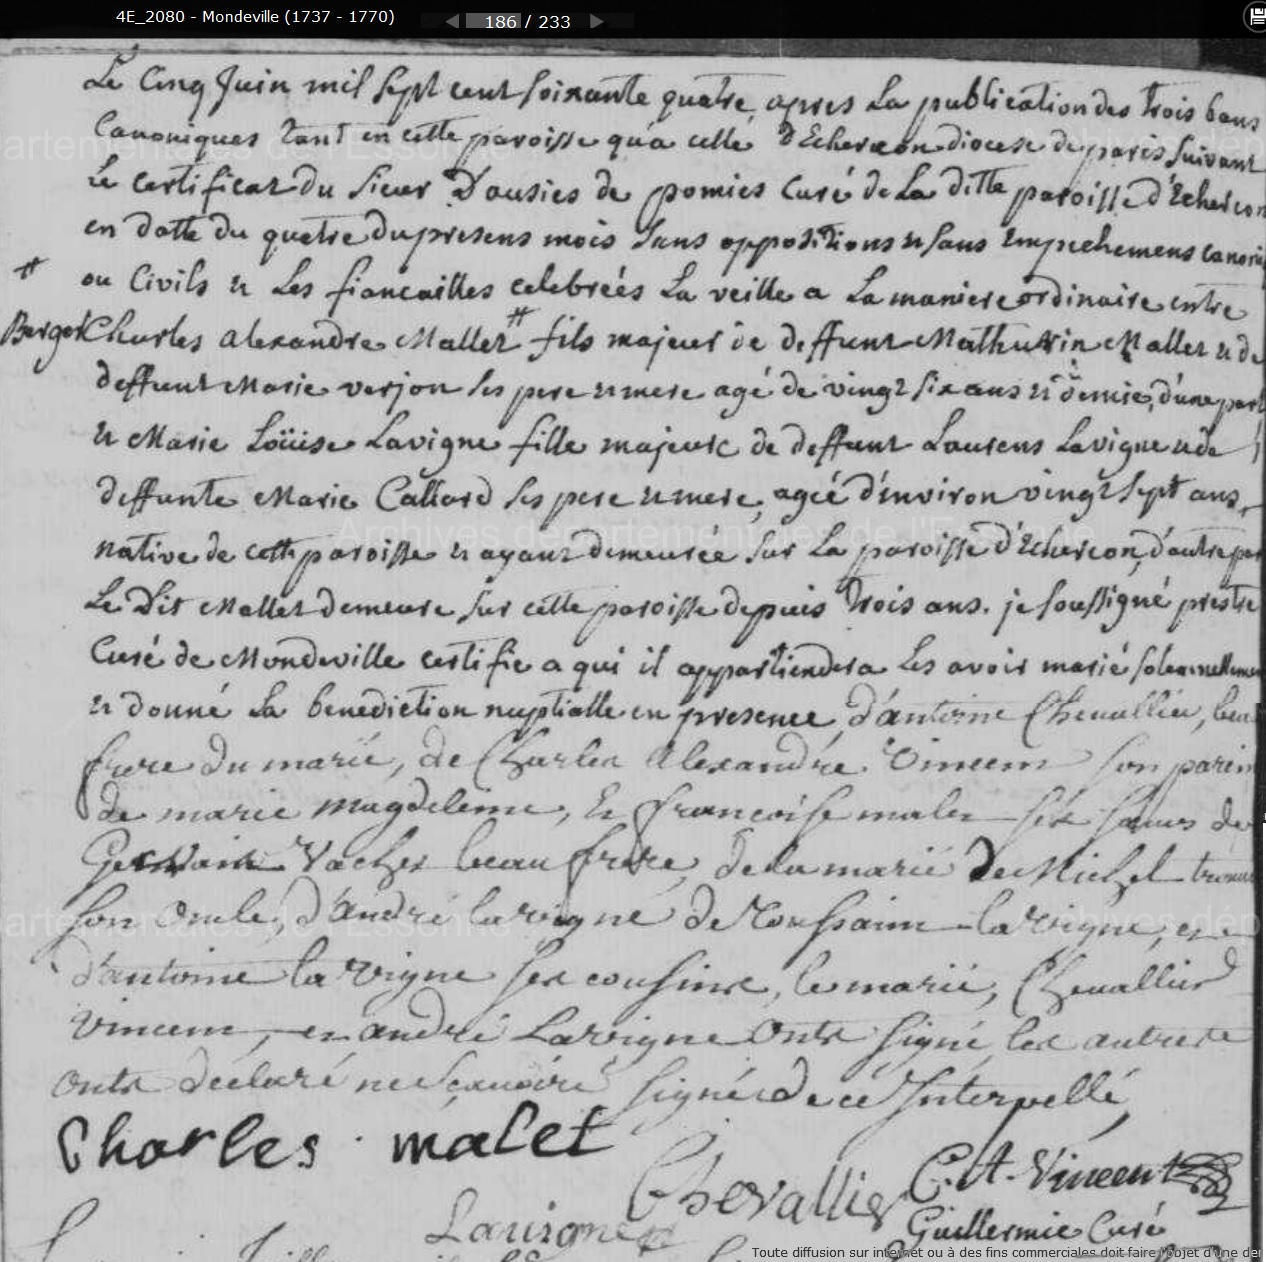 4E_2080 - Mondeville (1737 - 1770)
186 / 233
Le Cinq Juin mil sept cent soixante quatre, apres La publication des trois bans
Canoniques tant en cette paroisse qu'a celle d'Echarcon diocese de paris suivant
Le certificat du sieur Dausies de pomies Curé de La ditte paroisse d'Echarcon
en datte du quatre du presens mois sans oppositions et sans Empechemens canoni
ou Civils et Les fiancailles celebreés La veille a La maniere ordinaire entre
# Berger
Charles alexandre Mallet # fils majeur de deffunt Mathurin Mallet et de
deffunt Marie verjon ses pere et mere agé de vingt six ans et demie, d'une part
et Marie Loüise Lavigne fille majeure de deffunt Laurens Lavigne et de
deffunte Marie Callard ses pere et mere, ageé d'environ vingt sept ans,
native de cette paroisse et ayant demeureé sur La paroisse d'Echarcon, d'autre par
Le dit Mallet demeure sur cette paroisse depuis trois ans. je soussigné prestre
Curé de Mondeville certifie a qui il appartiendera Les avoir marié solennellemen
et donné La benediction nuptialle en presence, d'antoine Chevallier, beau
frere du marié, de Charles Alexandre Vincent son parein
de marie magdeleine, Et francoise malet ses sœurs de
Germain Vacher beau frere, de la marié de Michel
son oncle, d'André lavigne de Toussaint lavigne, et
d'antoine lavigne ses cousins, le marié, Chevallier
Vincent, et andré Lavigne Onts signé, les autres
onts déclaré ne sçavoire signér de ce Interpellé,
Charles malet
Chevallier
C. A. Vincent
Lavigne
Guillermic Curé
Toute diffusion sur internet ou à des fins commerciales doit faire l'objet d'une de
Archives départementales de l'Essonne